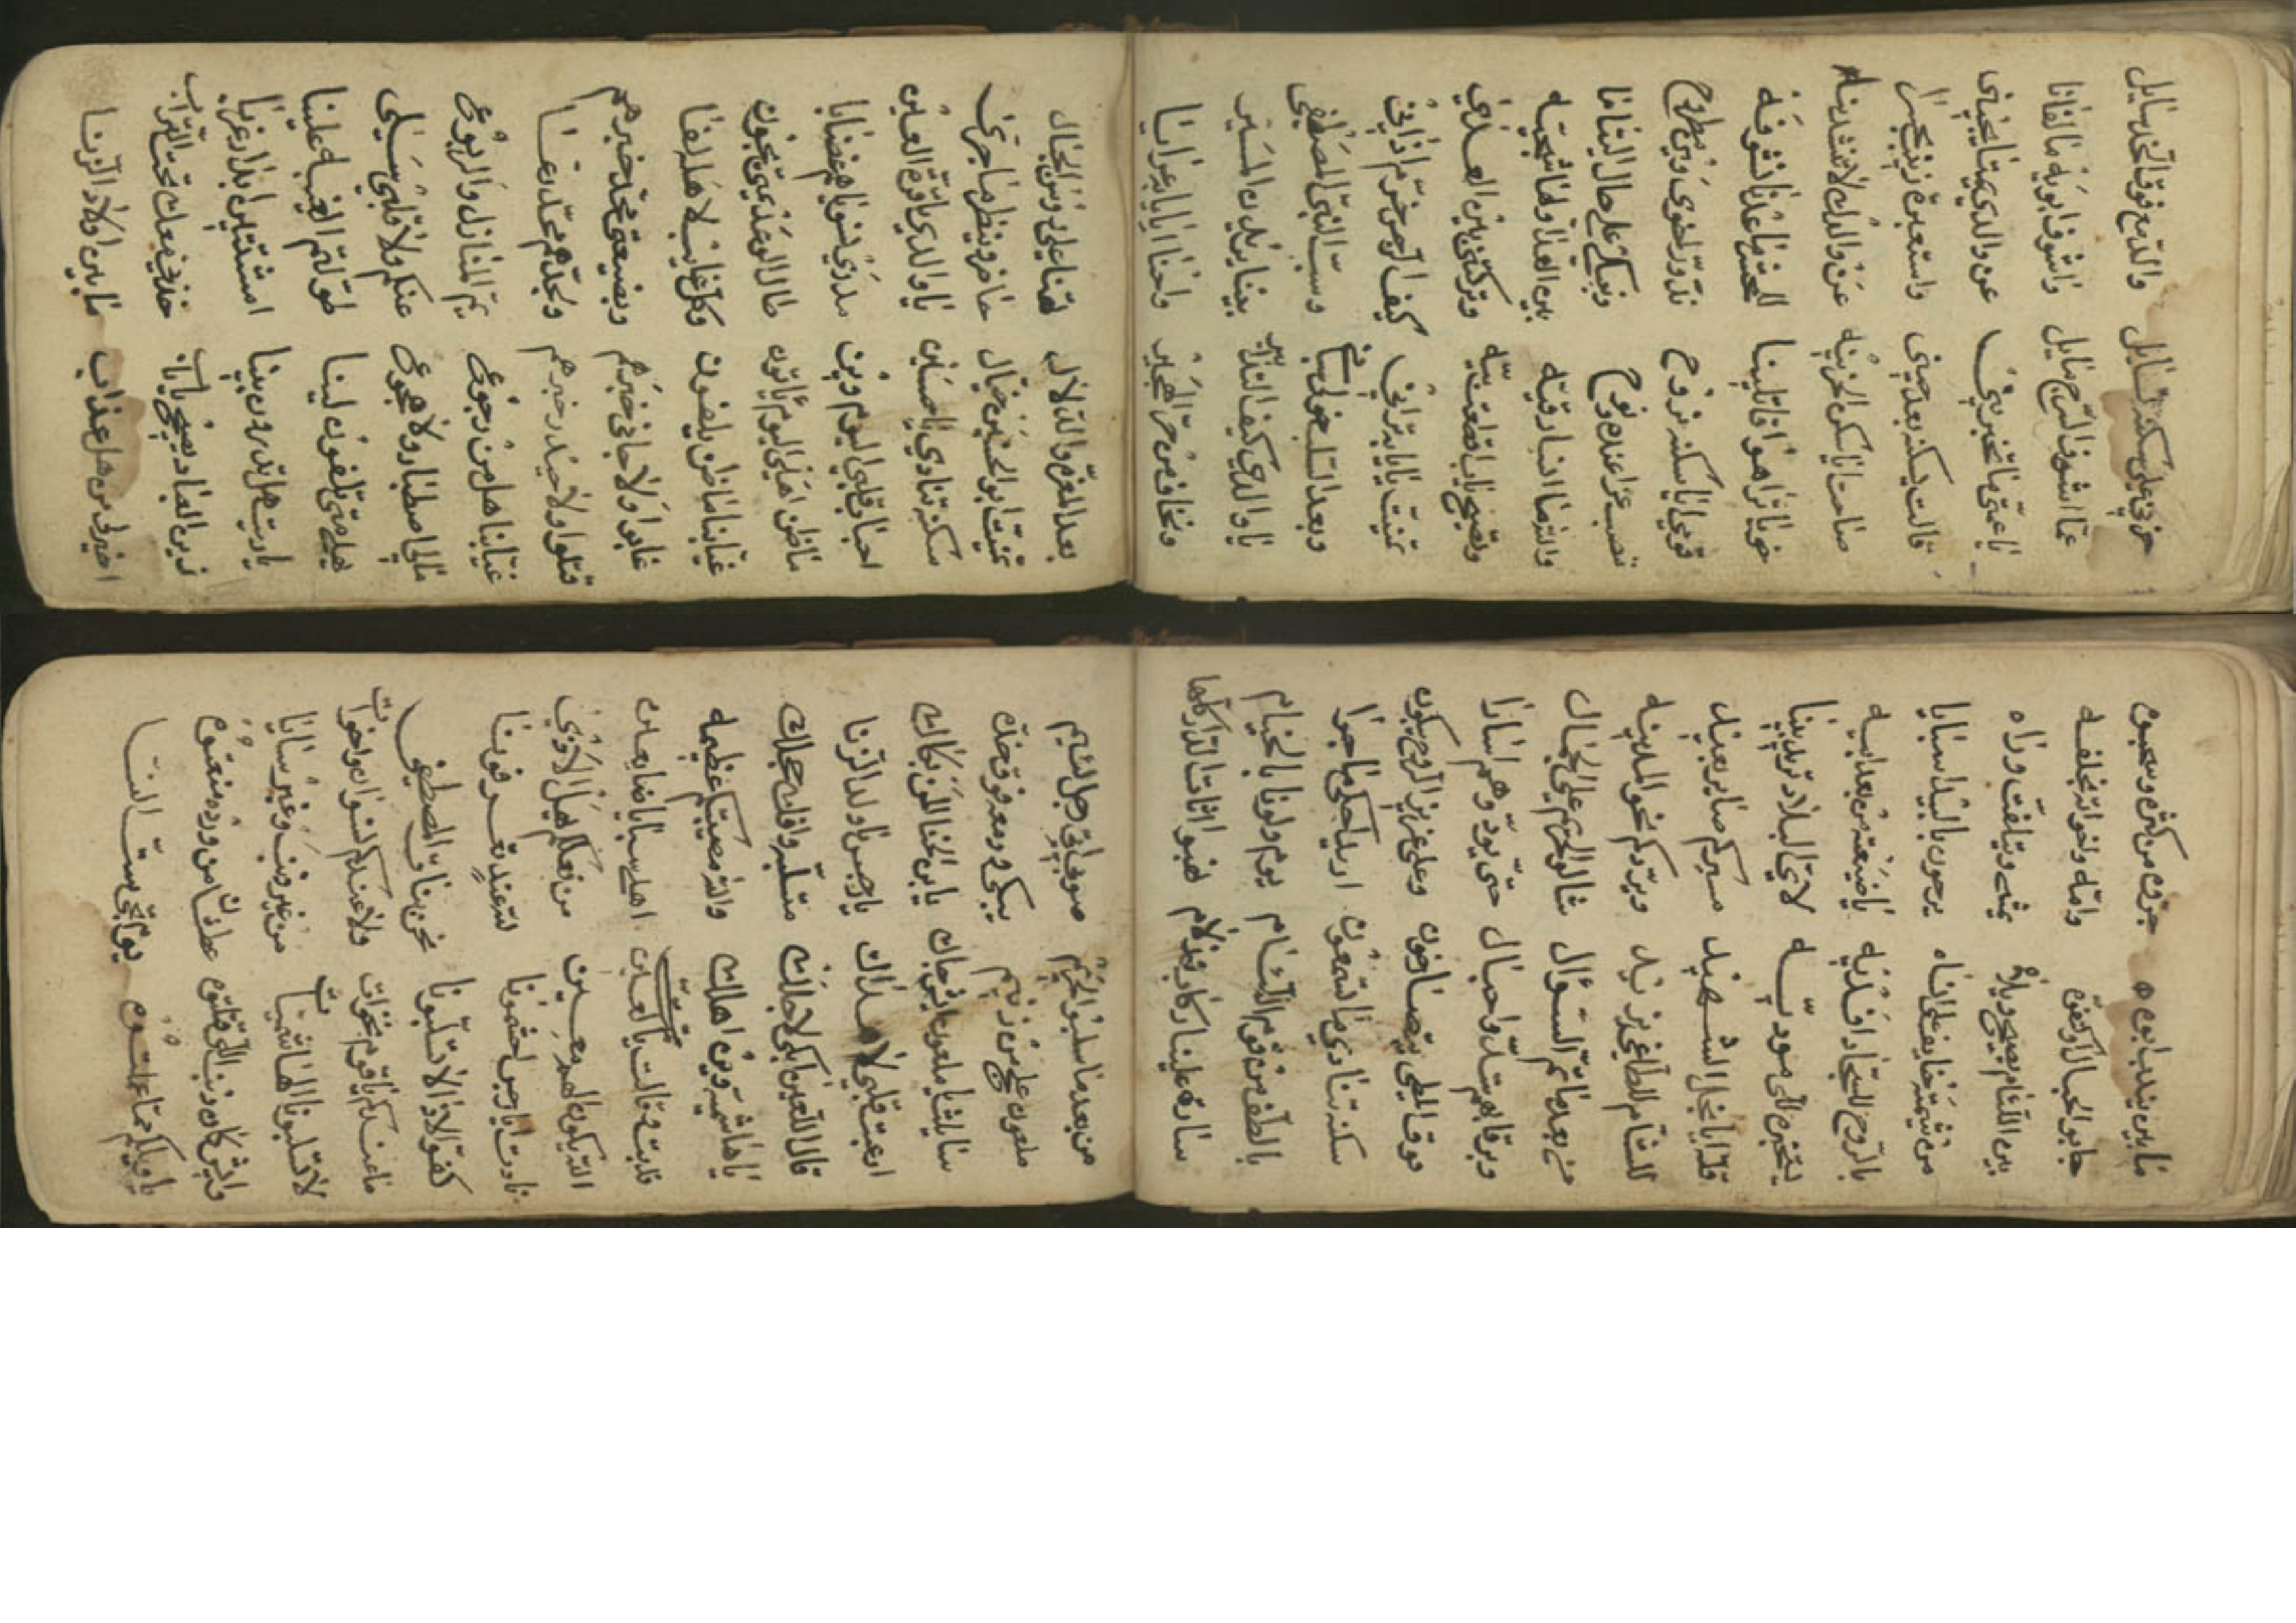 حزني على سكنه تسايل والدمع فوق الخد سايل
عمّا اشوف السرج مايل واشوف ابويه ما لفانا
يا عمتي ما تخبريني عن والدي متى يجيني
قالت سكنه بعد عيني واستعبرت زينب بحسرا
صاحت يا سكن الحزينه عن والدك لا تنشدينه
خويا تراهو اقاتلينا للخيم ما عدنا نشوفه
قومي يا سكنه نروح ندوّر لخوي وين مطروح
ننصب عزا عنده ونوح ونبكي على حال اليتاما
والله ما انسا رقيّه بين العدا ولها شجيّه
وتصيح يالباقطعت بيّه وتركتني بين العداي
تمنيت يا يابه تراني كيف الرجس خرم اذاني
وبعد السلب خوي سباني وسبّ النبي المصطفى
يا والدي كيف التدابير بينا يريدون المسير
ونخاف من حر الهجير واحنا ايا يابه عرايا
بعد المعزّ والدلال هتنا على روس الجبال
تمنيت ابو الحسنين خيال حاضر وينظر ما جرى
سكنه تنادي يا حسين يا والدي يا قوة العين
احنا وقلبي اليوم وين مدري نسونا يا هضنايا
ما ظن اهلي اليوم ياتون طال الوعد عمتي يجون
غيابنا ما ظن يلفون وكل غايب له لفا
غابوا ولا جاني خبرهم وبضيعتي محّد خبرهم
قتلوا ولا حيدر خبرهم ولجدّهم محّد عنا
غيابنا هل من رجوع يمّ المنازل والربوع
مالي اصطبار ولا هجوع عنكم ولا قلبي سلى
هيلي متى تلفون لينا طولتم الغيبه علينا
يا ريت هلي تدرون بينا امشتتين ابدار غربا
زين العباد يصيح يا باب خذني معك تحت التراب
اخبرني من هل عذاب ما بين اولاد الزنا
ما بين يندب ابوه حزوه من كثره وسحبوه
جابو الحبال وكتفوه وامّه واخواته بخلفه
بين اللئام يصيح ويلاه تمشي ويتلفت وراه
من شيمته خايف على انساه يرحون باليسر سبايا
يا لروح للسجّاد افديه يا ضيعته من بعد ابيه
يلتجين للي مودبّيه لاي البلاد تريدينا
قلّه يا نجل الشهيد مسيركم صاير بعيد
للشام للطاغي يزيد ويردكم نحو المدينه
من بعد ما تمّ السؤال شالو الحرم على الجمال
وبرقابهم شدّ واحبال حتى يودوهم اسارا
فوق المطي يتصارخون وعلى عزيز الروح يبكون
سكنه تنادي ما تسمعون اريد احكي ما جرا
بالطف من قوم اللئام يوم ولونا بالخيام
ساره علينا ركاب قدام نهبوا اثاثات لنا كلها
من بعد ما سلبوا الحريم صوبي اقبل رجل لئيم
ملعون على من زنيم يبكي ودمعه فوق خدّه
سايلته يا ملعون ايش جاك يا بن الخنا اللي بكاك
ارعبت قلبي لا هداك يا رجس يا ولد الزنا
قال اللعين ابكي لاجلك متسلبه وافله حجلك
يا هاشميه وين اهلك والله مصيبتكم عظيمه
قلت فقالت يا لعين اهلي سبايا ضايعين
التبكون المدمعين من فعلكم هيل الاذى
نادت ايا رجس لخصومنا لله عند يتعرفوننا
كفو الاذا لا تسلبونا نحن بنات المصطفى
ما عندكم يا قوم نخوات ولا عندكم نسوان واخوات
لا تسلبونا الهاشميّات من غير ذنب وغير سايا
وايش كان ذنب اللي قتلتوه عطشان من ورده منعتوه
يا ويلكم ممّا عملتوه يوم تجي ستّ النسا